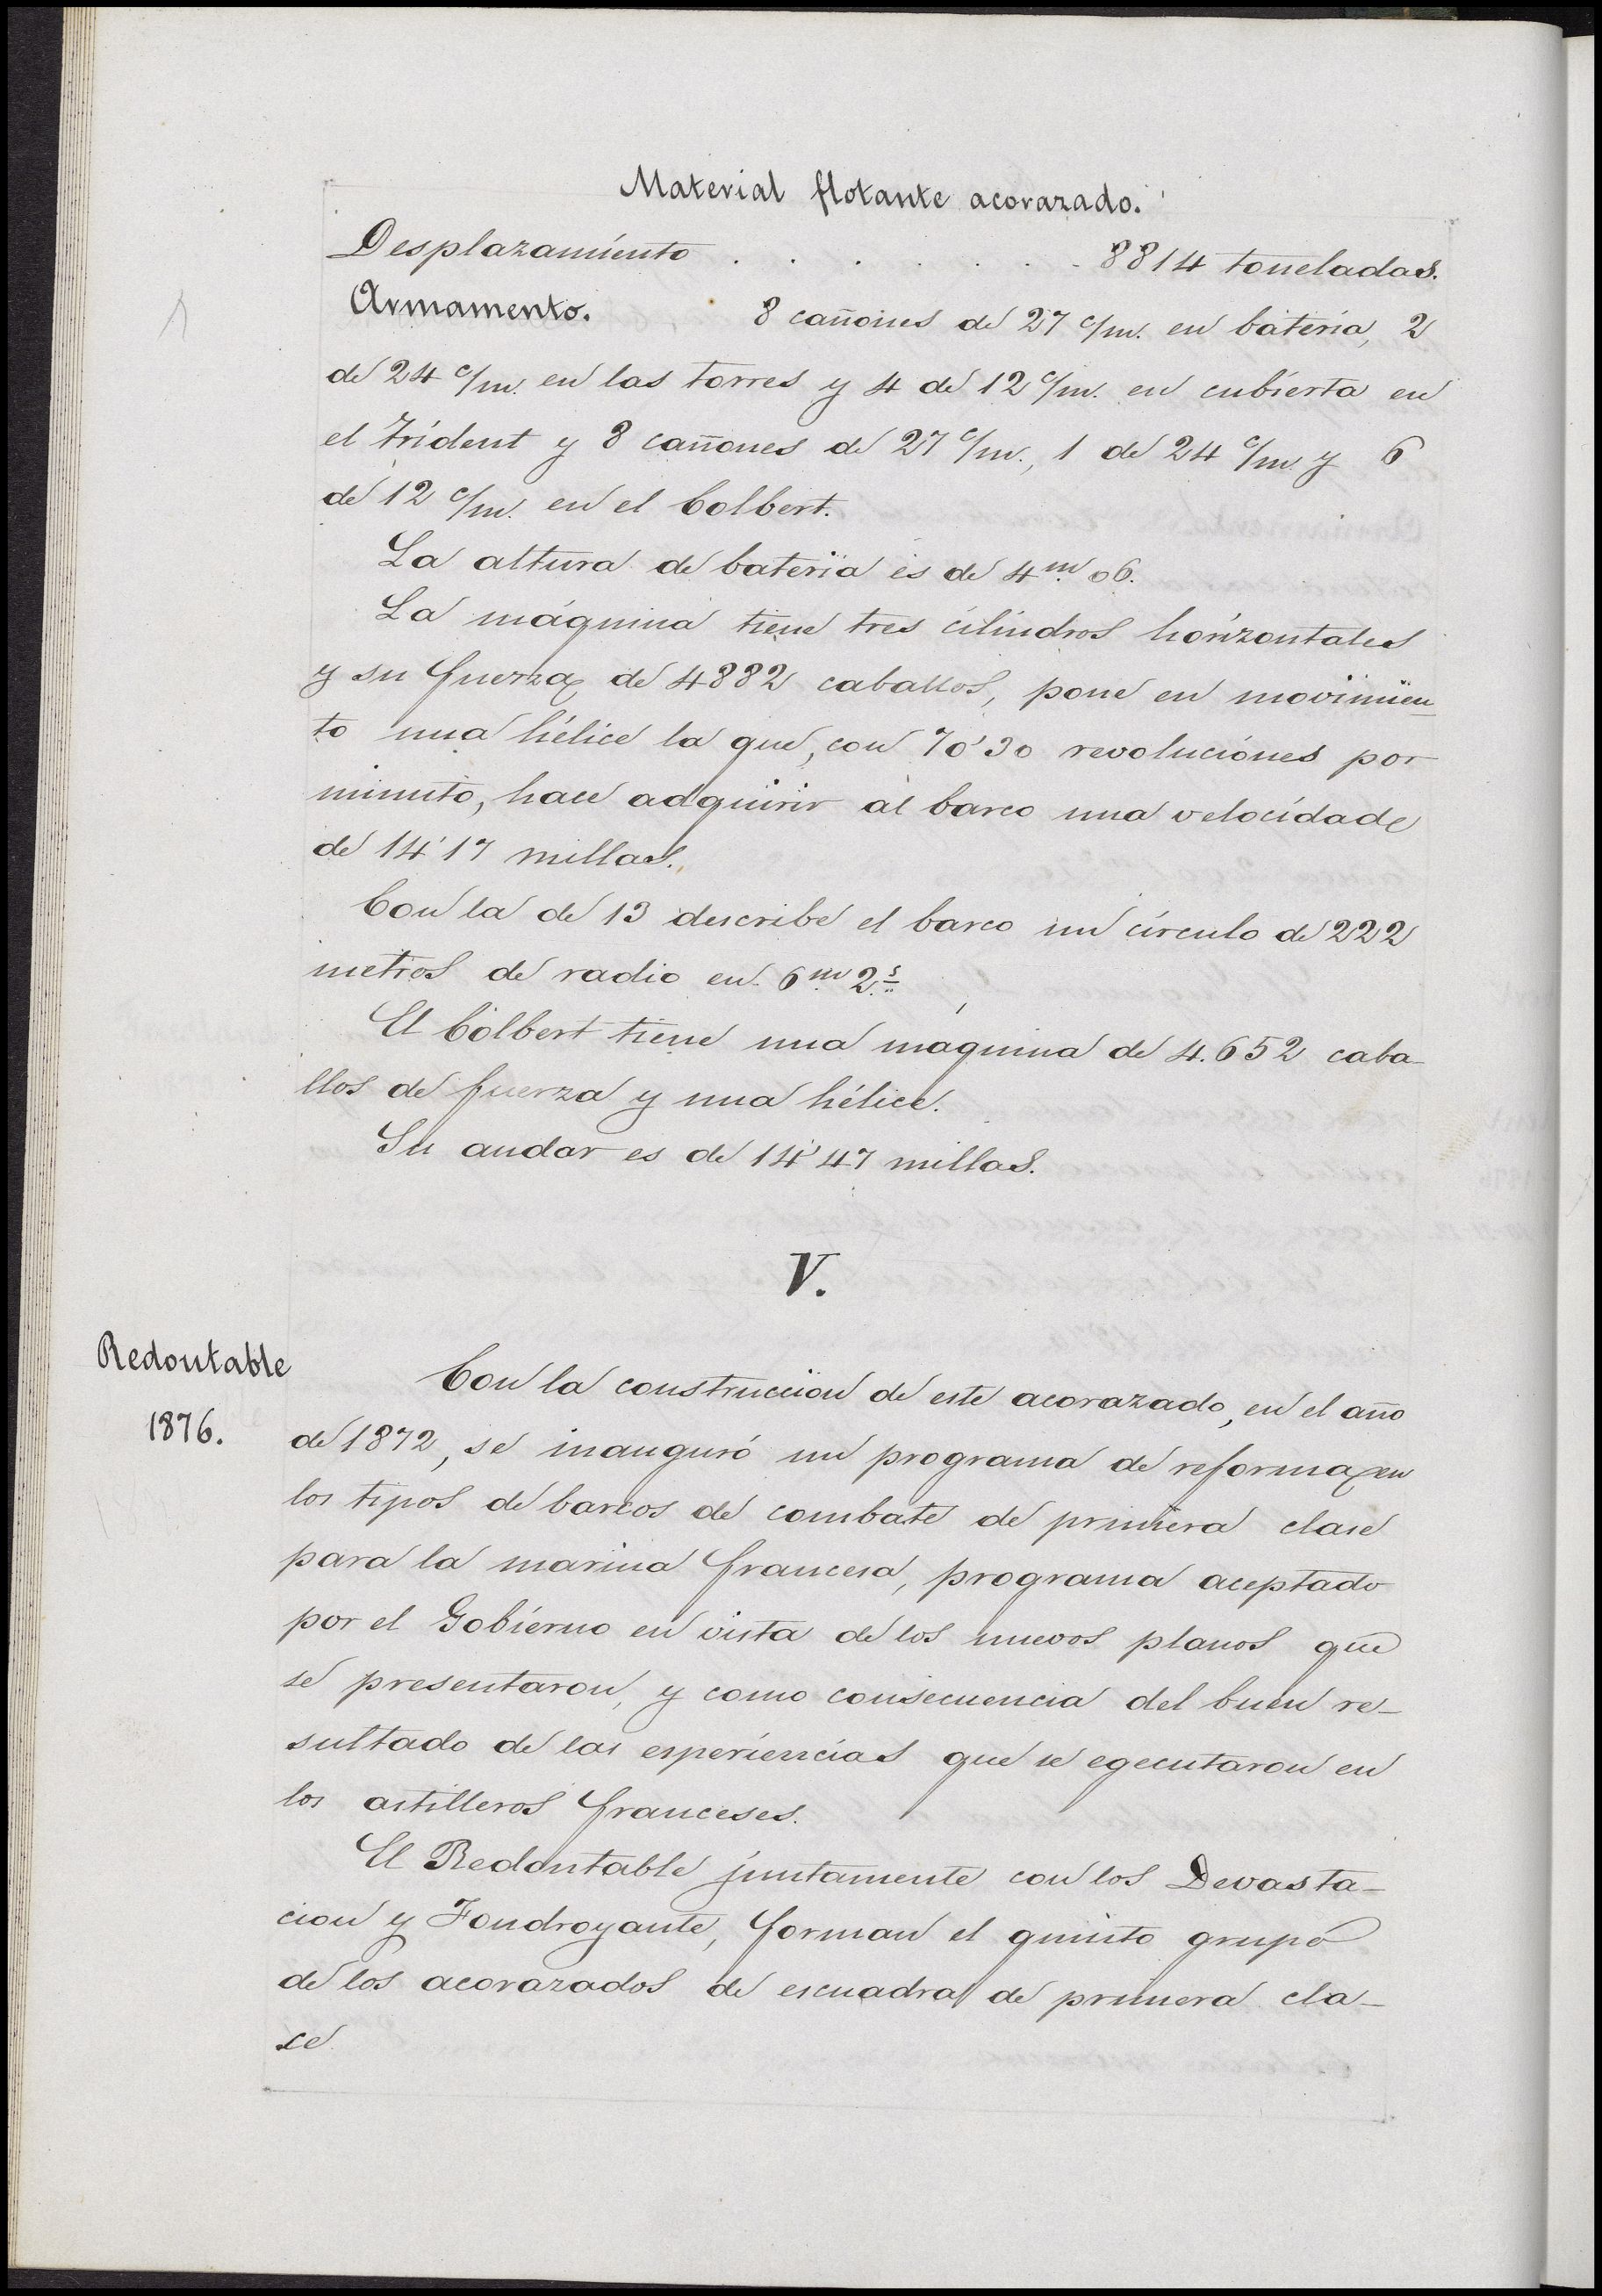 Material flotante acorazado.
Desplazamiento . . . . . . . 8814 toneladas.
Armamento. 8 cañones de 27 c/m. en bateria, 2
de 24 c/m. en las torres y 4 de 12 c/m. en cubierta en
el Trident y 8 cañones de 27 c/m., 1 de 24 c/m. y 6
de 12 c/m. en el Colbert.
La altura de bateria es de 4m. 06.
La máquina tiene tres cilindros horizontales
y su fuerza de 4882 caballos, pone en movimien-
to una hélice la que, con 70'30 revoluciones por
minuto, hace adquirir al barco una velocidad
de 14'17 millas.
Con la de 13 describe el barco un círculo de 222
metros de radio en 6m. 2s.
El Colbert tiene una máquina de 4.652 caba-
llos de fuerza y una hélice.
Su andar es de 14'47 millas.
V.
Redoutable
1876.
Con la construccion de este acorazado, en el año
de 1872, se inauguró un programa de reforma en
los tipos de barcos de combate de primera clase
para la marina francesa, programa aceptado
por el Gobierno en vista de los nuevos planos que
se presentaron, y como consecuencia del buen re-
sultado de las esperiencias que se egecutaron en
los astilleros franceses.
El Redoutable juntamente con los Devasta-
cion y Foudroyante, forman el quinto grupo
de los acorazados de escuadra de primera cla-
se